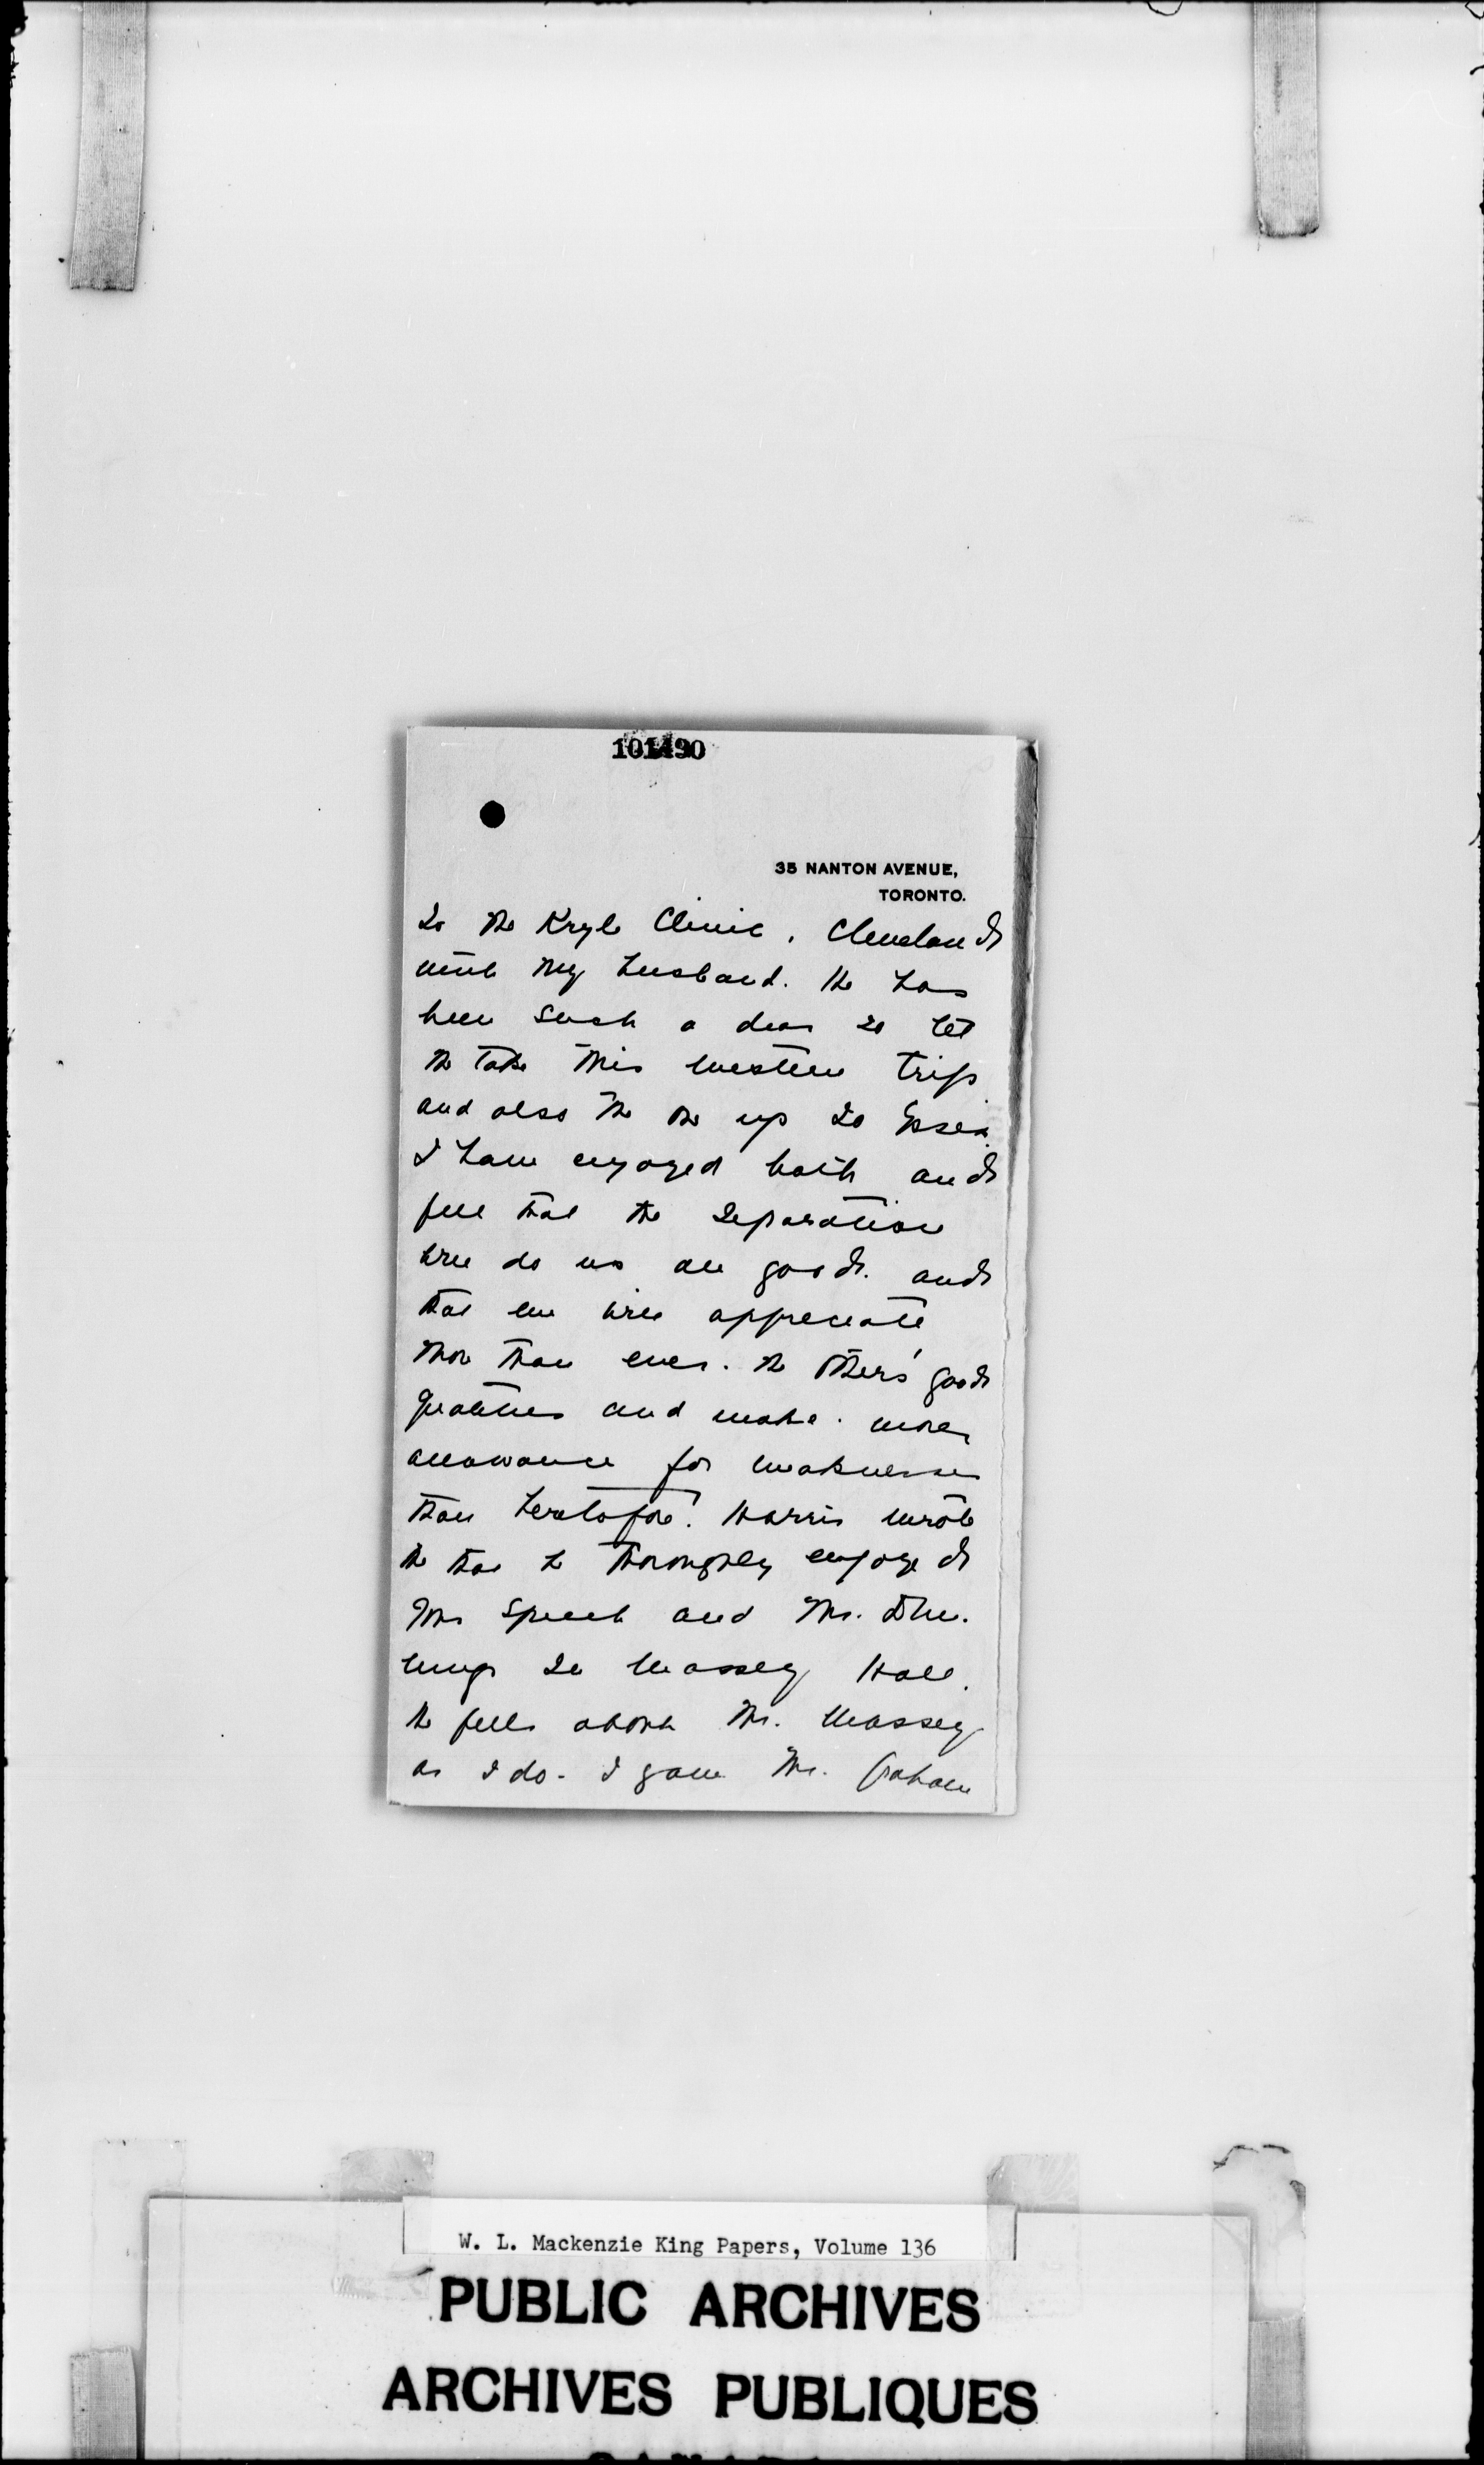 101490
35 NANTON AVENUE,
TORONTO.
to the Kryle Clinic, Cleveland
with my husband. He has
been such a dear to let
me take this western trip
and also the one up to Essex.
I have enjoyed both and
feel that the separation
will do us all good. and
that we will appreciate
more than ever. the others' good
qualities and make. more
allowance for weaknesses
than heretofore! Harris wrote
me that he thoroughly enjoyed
your speech and Mr. Dun.
nings in Massey Hall.
He feels about Mr. Massey
as I do. I gave Mr. Graham
W. L. Mackenzie King Papers, Volume 136
PUBLIC ARCHIVES
ARCHIVES PUBLIQUES